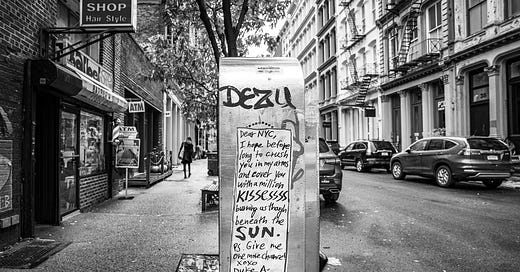 SHOP
Hair Style
ATM
DEZU
Dear NYC,
I hope before
long to crush
you in my arms
and cover you
with a million
KISSESSSS
burning as though
beneath the
SUN.
P.S. Give me
one more chance!
xoxo
Duke A.